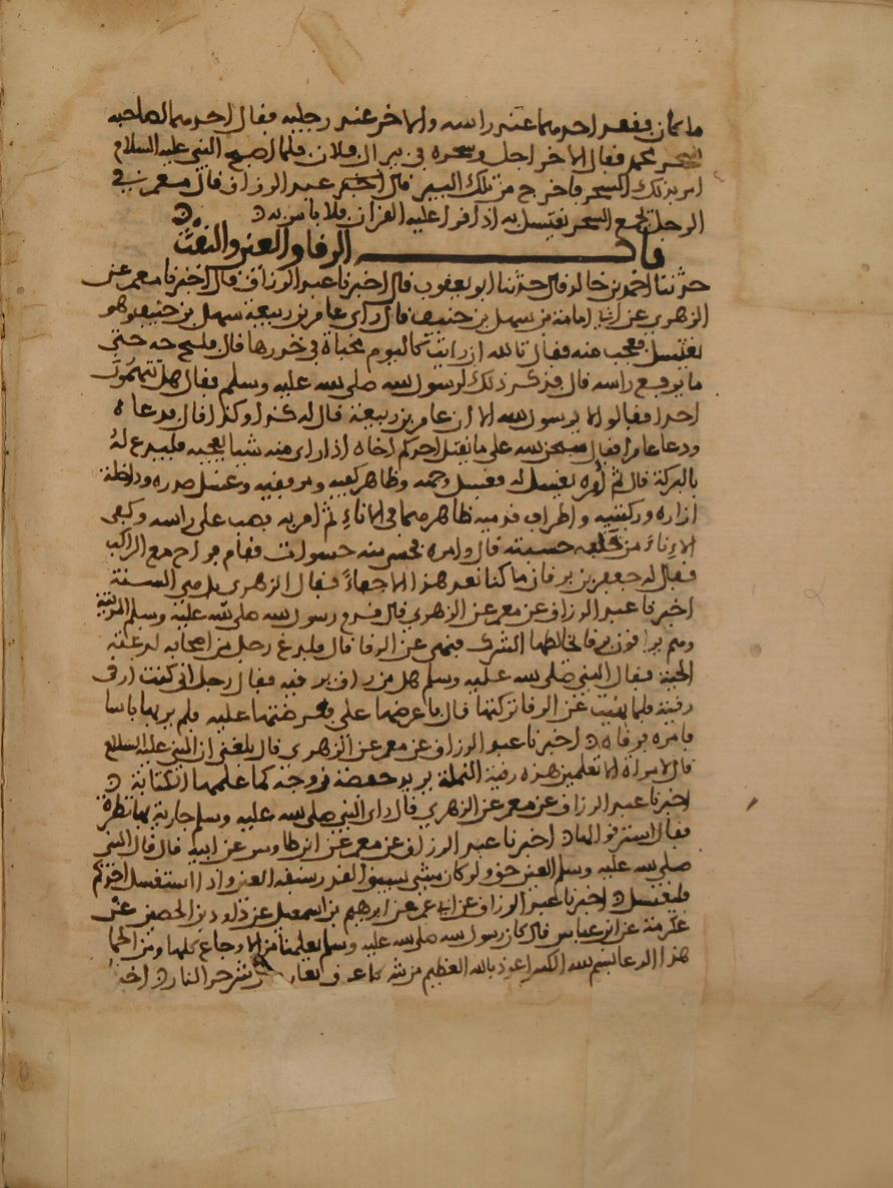 ملكان فقعد احدهما عند راسه والاخر عند رجليه فقال احدهما لصاحبه
اسحر محمد فقال الاخر اجل وسحره في بير ال فلان فلما اصبح النبي عليه السلام
امر بذلك السحر فاخرج من تلك البير قال اخبرنا عبد الرزاق قال معمر في
الرجل يجمع السحر يغتسل به اذا قرا عليه القران فلا باس به
باب الرقا والعين والنفث
حدثنا احمد بن خالد قال حدثنا ابو يعقوب قال اخبرنا عبد الرزاق قال اخبرنا معمر عن
الزهري عن ابي امامة بن سهل بن حنيف قال راى عامر بن ربيعة سهل بن حنيف وهو
يغتسل فعجب منه فقال تالله ان رايت كاليوم مخباة في خدرها قال فلبج به حتى
ما يرفع راسه قال فذكر ذلك لرسول الله صلى الله عليه وسلم فقال هل تتهمون
احدا فقالوا لا يرسول الله الا ان عامر بن ربيعة قال له كذا وكذا قال فدعاه
ودعا عامرا فقال سبحن الله على ما يقتل احدكم اخاه اذا راى منه شيا يعجبه فليدع له
بالبركة قال ثم امره يغتسل له فغسل وجهه وظاهر كفيه ومرفقيه وغسل صدره وداخلة
ازاره وركبتيه واطراف قدميه ظاهرهما في الاناء ثم امر به فصب على راسه وكفى
الاناء من خلفه حسبته قال وامره فحسى منه حسوات فقام فراح مع الراكب
فقال له جعفر بن برقان ما كنا نعد هذا الا جفاء فقال الزهري بل هي السنة
اخبرنا عبد الرزاق عن معمر عن الزهري قال قدم رسول الله صلى الله عليه وسلم المدينة
وهم يرقون برقا يخالطها الشرك فنهى عن الرقا قال فلدغ رجل من اصحابه لدغته
الحية فقال النبي صلى الله عليه وسلم هل من راق يرقيه فقال رجل اني كنت ارقي
رقية فلما نهيت عن الرقا تركتها قال فاعرضها علي فعرضتها عليه فلم ير بها باسا
فامره فرقاه اخبرنا عبد الرزاق عن معمر عن الزهري قال بلغني ان النبي عليه السلام
قال لامراة الا تعلمين هذه رقية النملة يريد حفصة زوجته كما علمتها الكتابة
اخبرنا عبد الرزاق عن معمر عن الزهري قال راى النبي صلى الله عليه وسلم جارية بها نظرة
فقال استرقوا لها اخبرنا عبد الرزاق عن معمر عن ابن طاوس عن ابيه قال قال النبي
صلى الله عليه وسلم العين حق ولو كان شي يسبق القدر سبقه العين واذا استغسل احدكم
فليغتسل اخبرنا عبد الرزاق عن ابراهيم بن اسمعيل عن داود بن الحصين عن
عكرمة عن ابن عباس قال كان رسول الله صلى الله عليه وسلم يعلمنا من الاوجاع كلها ومن الحما
هذا الدعا بسم الله الكبير اعوذ بالله العظيم من شر كل عرق نعار ومن شر حر النار